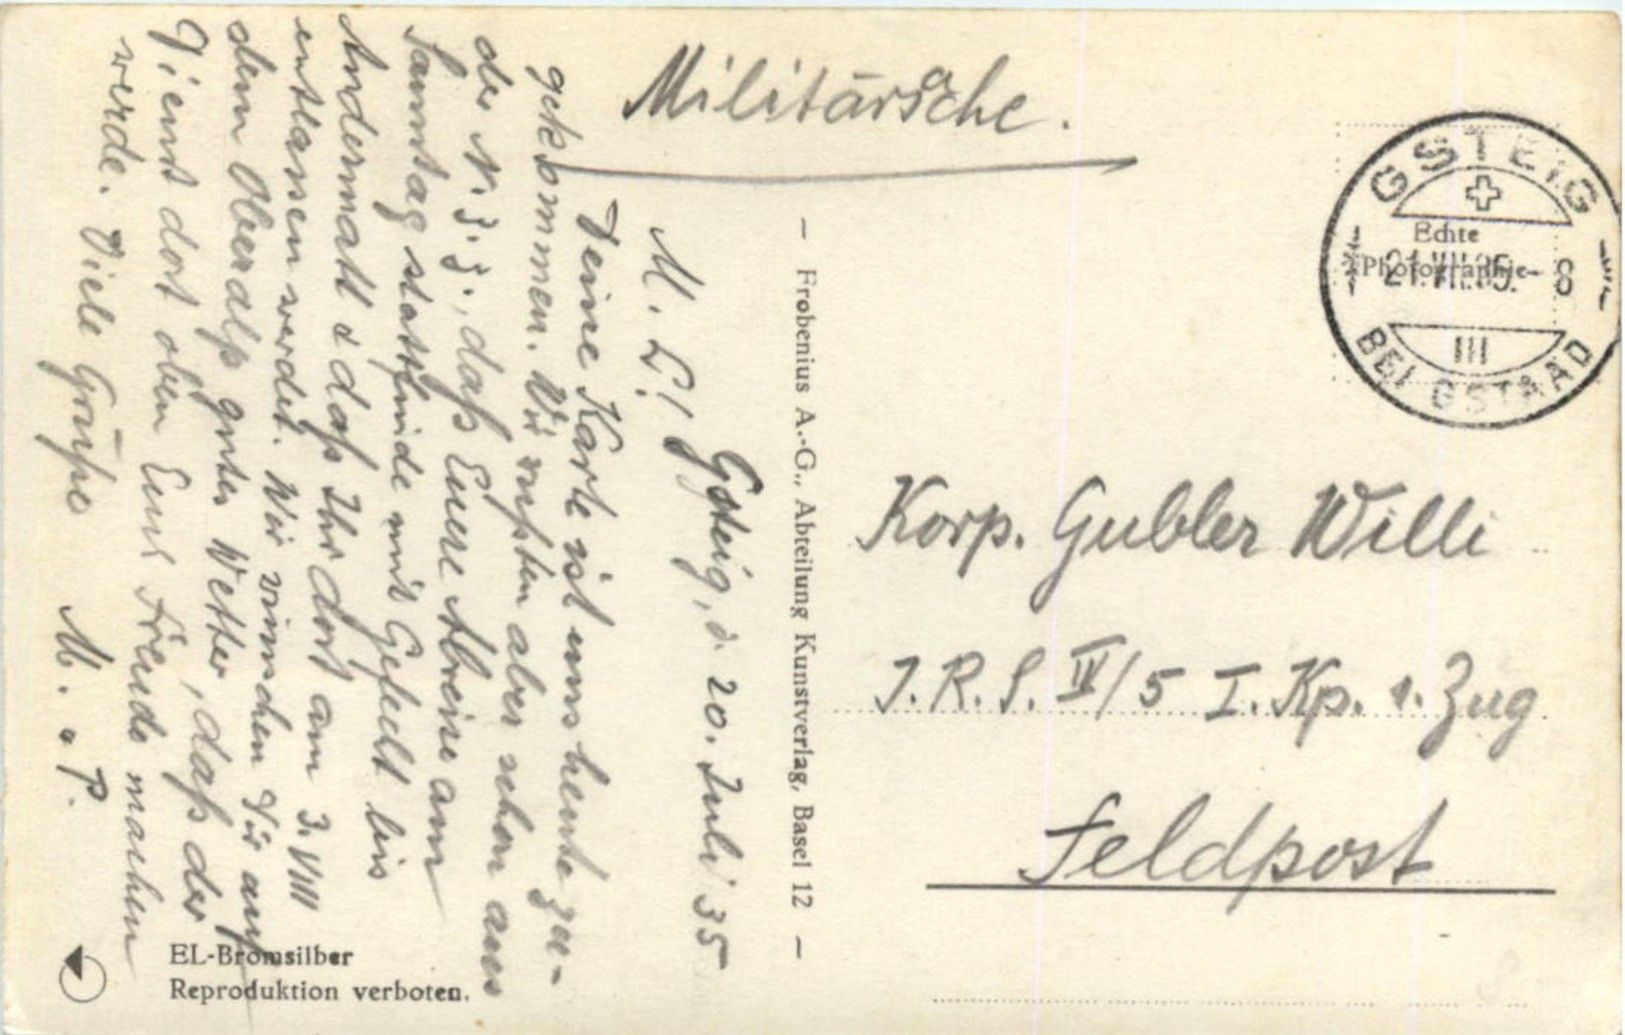 Militärsche.
Gsteig, d. 20. Juli 35
M. L!
Deine Karte ist uns heute zu-
gekommen. Wir wußten aber schon aus
der N. Z. Z., daß Euere Abreise am
Samstag stattfinde mit Gefecht bis
Andermatt & daß Ihr dort am 3. VIII
entlassen werdet. Wir wünschen Dir auf
dem Oberalp gutes Wetter, daß der
Dienst dort oben Euch Freude machen
werde. Viele Grüße
M. & P.
— Frobenius A.-G., Abteilung Kunstverlag, Basel 12 —
GSTEIG
Echte
Photographie
21.VII.35. 8
III
BEI GSTAAD
Korp. Gubler Willi
I. R. S. IV/5 I. Kp. 1. Zug
Feldpost
EL-Bromsilber
Reproduktion verboten.